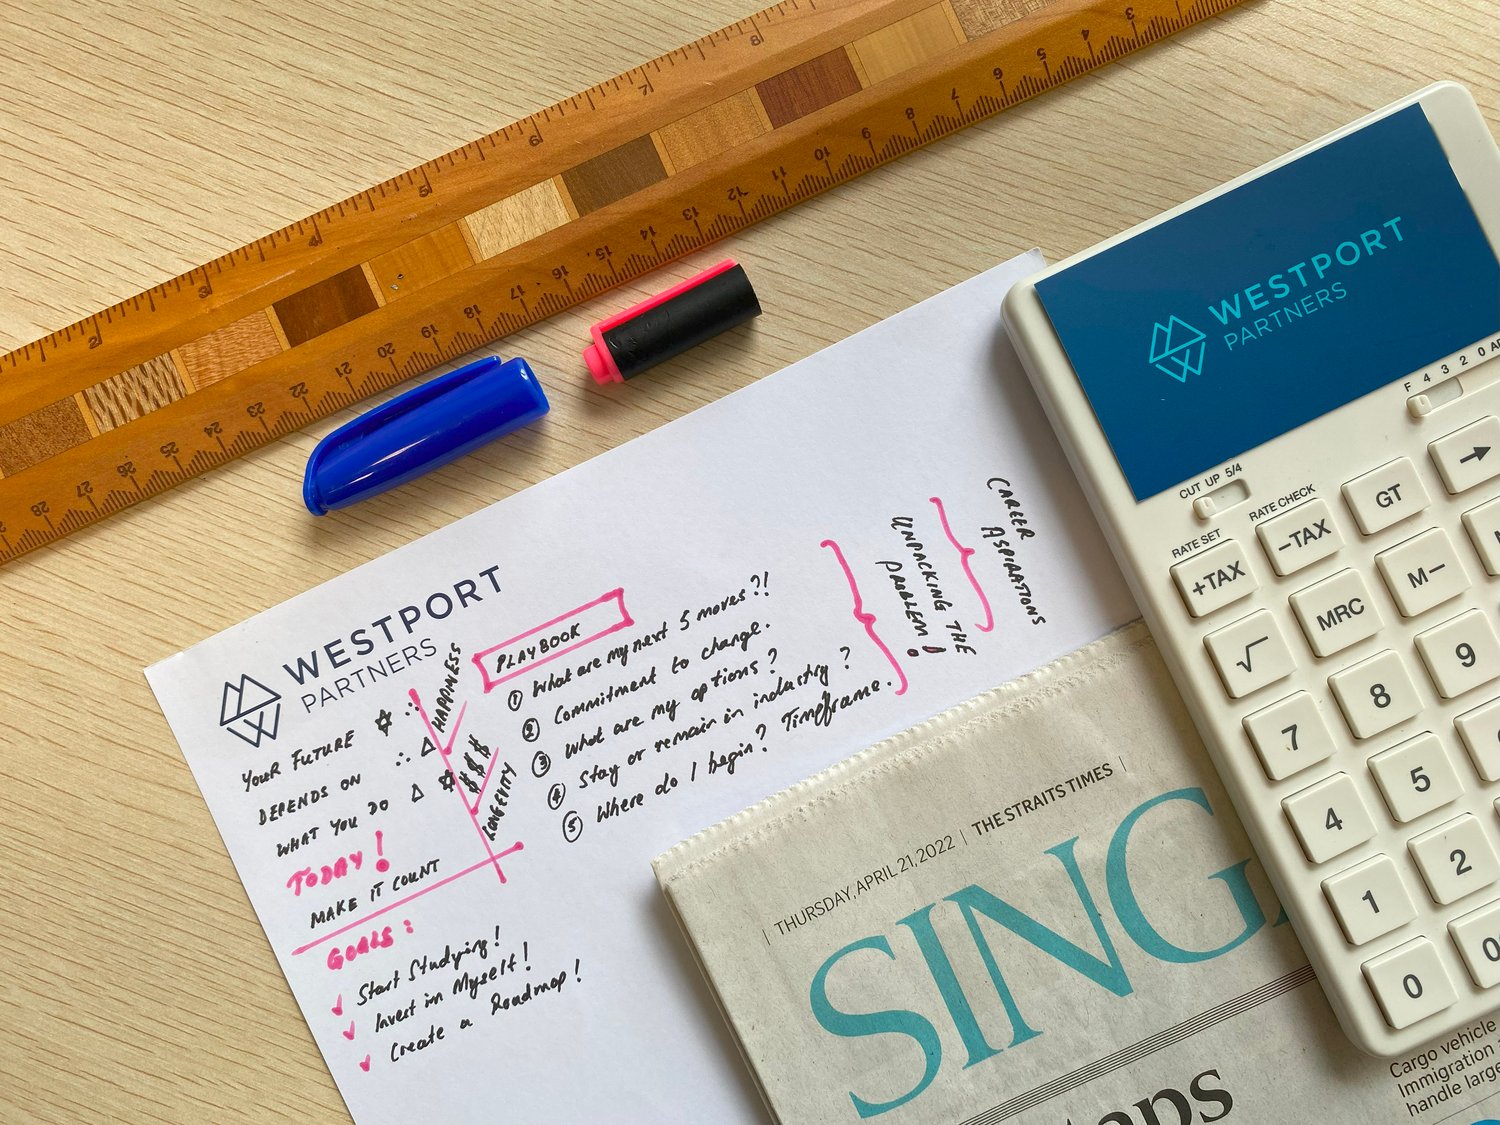 WESTPORT
PARTNERS
YOUR FUTURE
DEPENDS ON
WHAT YOU DO
TODAY!
MAKE IT COUNT
HAPPINESS
$$$
LONGEVITY
GOALS:
Start Studying!
Invest in Myself!
Create a Roadmap!
PLAYBOOK
① What are my next 5 moves?!
② Commitment to change.
③ What are my options?
④ Stay or remain in industry?
⑤ Where do I begin? Timeframe.
UNPACKING THE
PROBLEM!
CAREER
ASPIRATIONS
WESTPORT
PARTNERS
F 4 3 2 0 A
CUT UP 5/4
RATE SET
RATE CHECK
+TAX
-TAX
GT
→
√
MRC
M-
7
8
9
4
5
1
2
0
0
| THURSDAY, APRIL 21, 2022 | THE STRAITS TIMES |
SING
aps
Cargo vehicle
Immigration
handle large
2
3
4
5
6
7
8
3
4
5
6
7
8
9
10
11
12
13
14
15
16
17
18
19
20
21
22
23
24
25
26
27
28